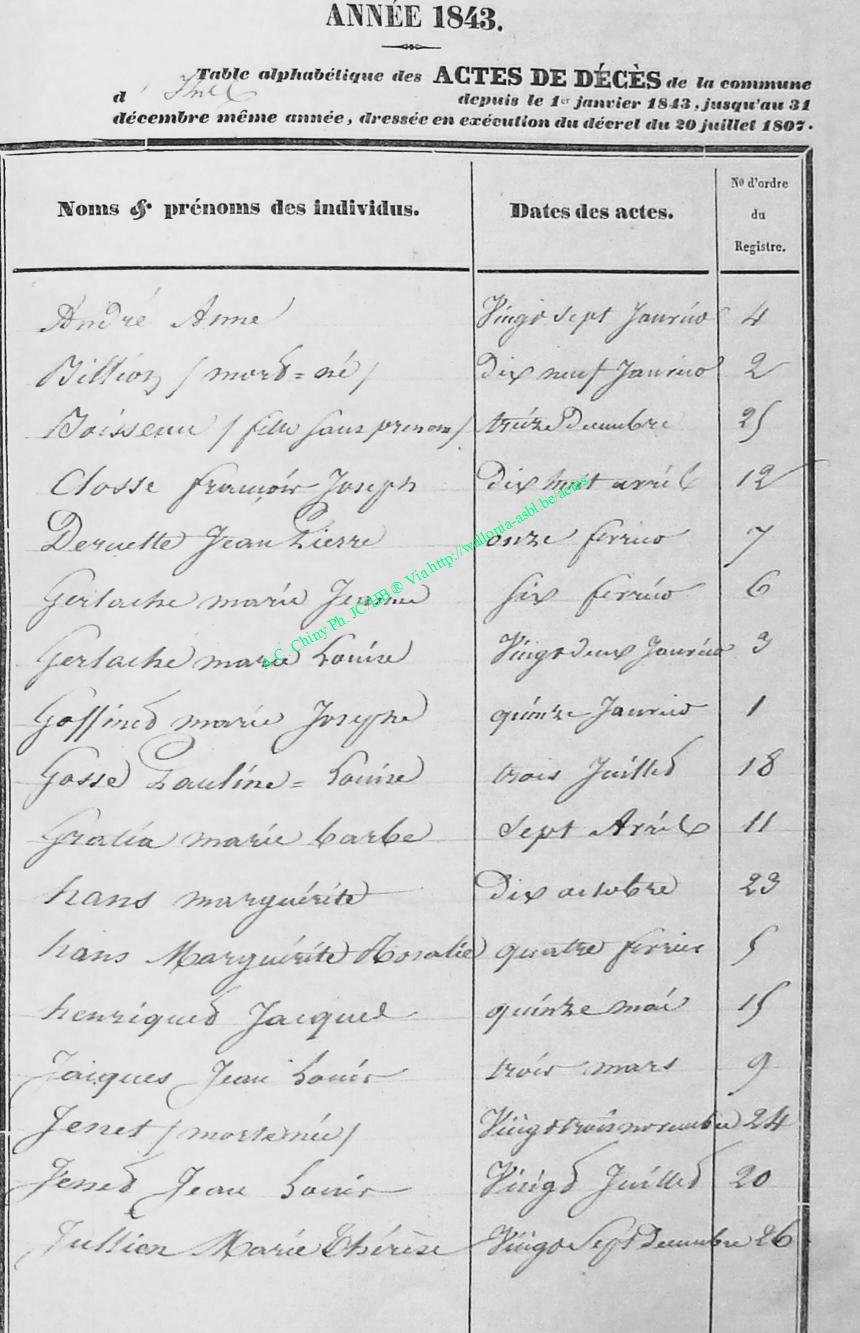 ANNÉE 1843.
Table alphabétique des ACTES DE DÉCÈS de la commune
d' depuis le 1er janvier 1843, jusqu'au 31
décembre même année, dressée en exécution du décret du 20 juillet 1807.
Noms & prénoms des individus. Dates des actes. No d'ordre du Registre.
André Anne Vingt sept Janvier 4
Billion / mord=né / Dix neuf Janvier 2
Boisseau / fille sans prenom / treize Decembre 25
Closse francois Joseph Dix huit avril 12
Deruette Jean Pierre onze fevrier 7
Gerlache marie Jeanne six fevrier 6
Gerlache marie Louise Vingt deux Janvier 3
Goffined marie Josephe quinze Janvier 1
Gosse Pauline=Louise trois Juilled 18
Gralia marie barbe sept Avril 11
hans marguérite Dix octobre 23
hans Marguérite Rosalie quatre fevrier 5
henriqued Jacques quinze mai 15
Jaiques Jean Louis trois mars 9
Jenet / morte née / Vingt trois novembre 24
Jened Jean Louis Vingd Juilled 20
Jullien Marie Thérèse Vingt Sept Decembre 26
A.C. Chiny Ph. JC HB ® Via http://wallonia-asbl.be/actes